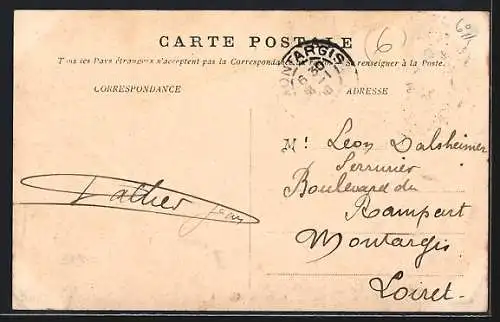 (6)
CARTE POSTALE
Tous les Pays étrangers n'acceptent pas la Correspondance se renseigner à la Poste.
MONTARGIS
CORRESPONDANCE
ADRESSE
Mr Leon Dalsheimer
Serrurier
Boulevard du
Rampart
Montargis
Loiret.